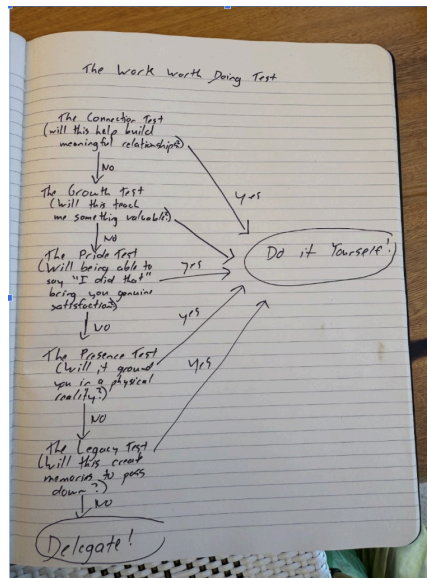 The Work Worth Doing Test
The Connection Test
(will this help build
meaningful relationships?)
NO
yes
The Growth Test
(Will this teach
me something valuable?)
NO
The Pride Test
(Will being able to
say "I did that"
bring you genuine
satisfaction?)
yes
Do it Yourself!
NO
yes
The Presence Test
(Will it ground
you in a physical
reality?)
yes
NO
The Legacy Test
(Will this create
memories to pass
down?)
NO
Delegate!